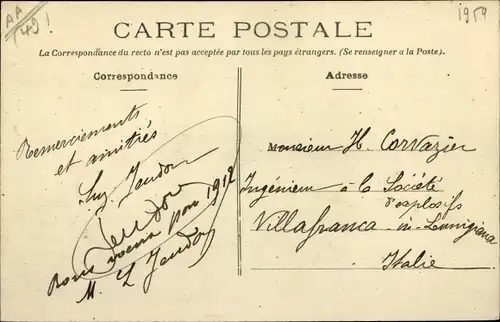 AA
(49)
1959
CARTE POSTALE
La Correspondance du recto n'est pas acceptée par tous les pays étrangers. (Se renseigner a la Poste).
Correspondance
Remerciements
et amitiés
Bons voeux pour 1912
M. L
Adresse
Monsieur H. Corvazier
Ingénieur à la Société
d'explosifs
Villafranca in Lunigiana
Italie